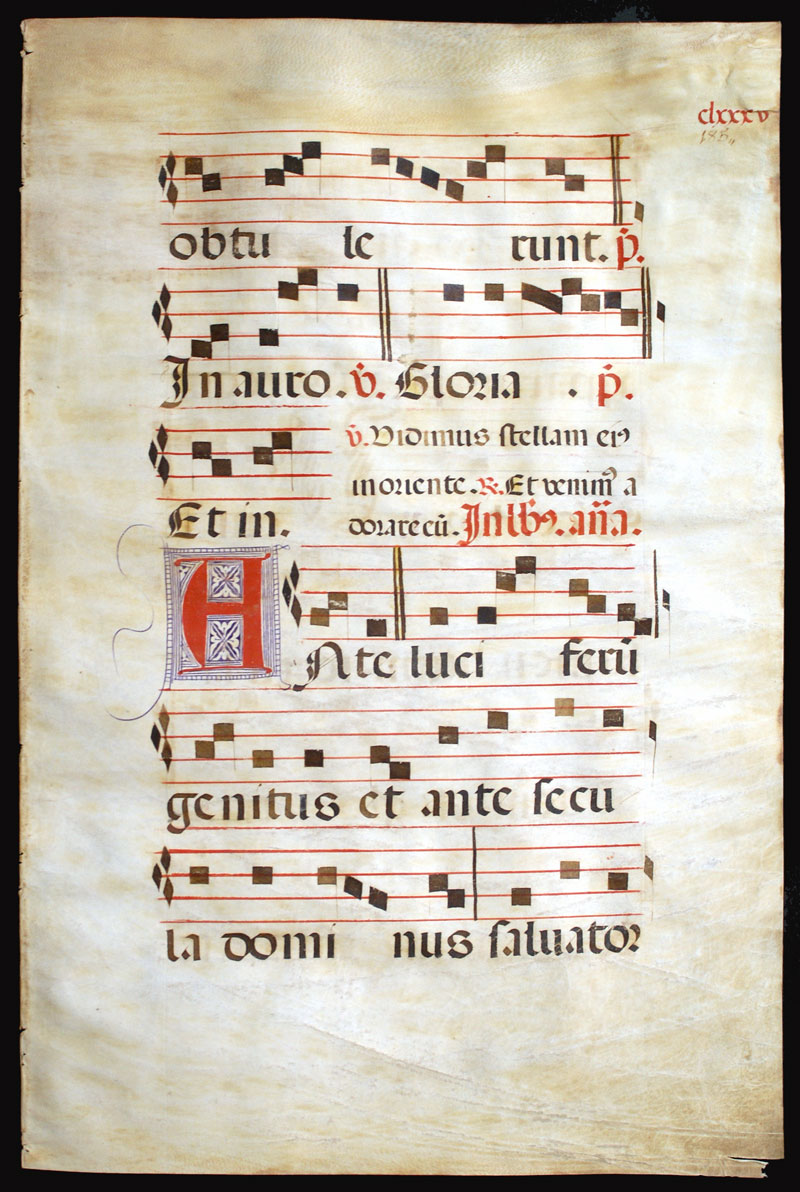 clxxxv
185
obtu le runt. p̄.
In auro. v̄. Gloria . p̄.
Et in.
v̄. Vidimus stellam eiꝰ
in oriente. R. Et venimꝰ a
dorare cū. In lb̄ꝰ. an̄a.
Ante luci ferū
genitus et ante secu
la domi nus saluator